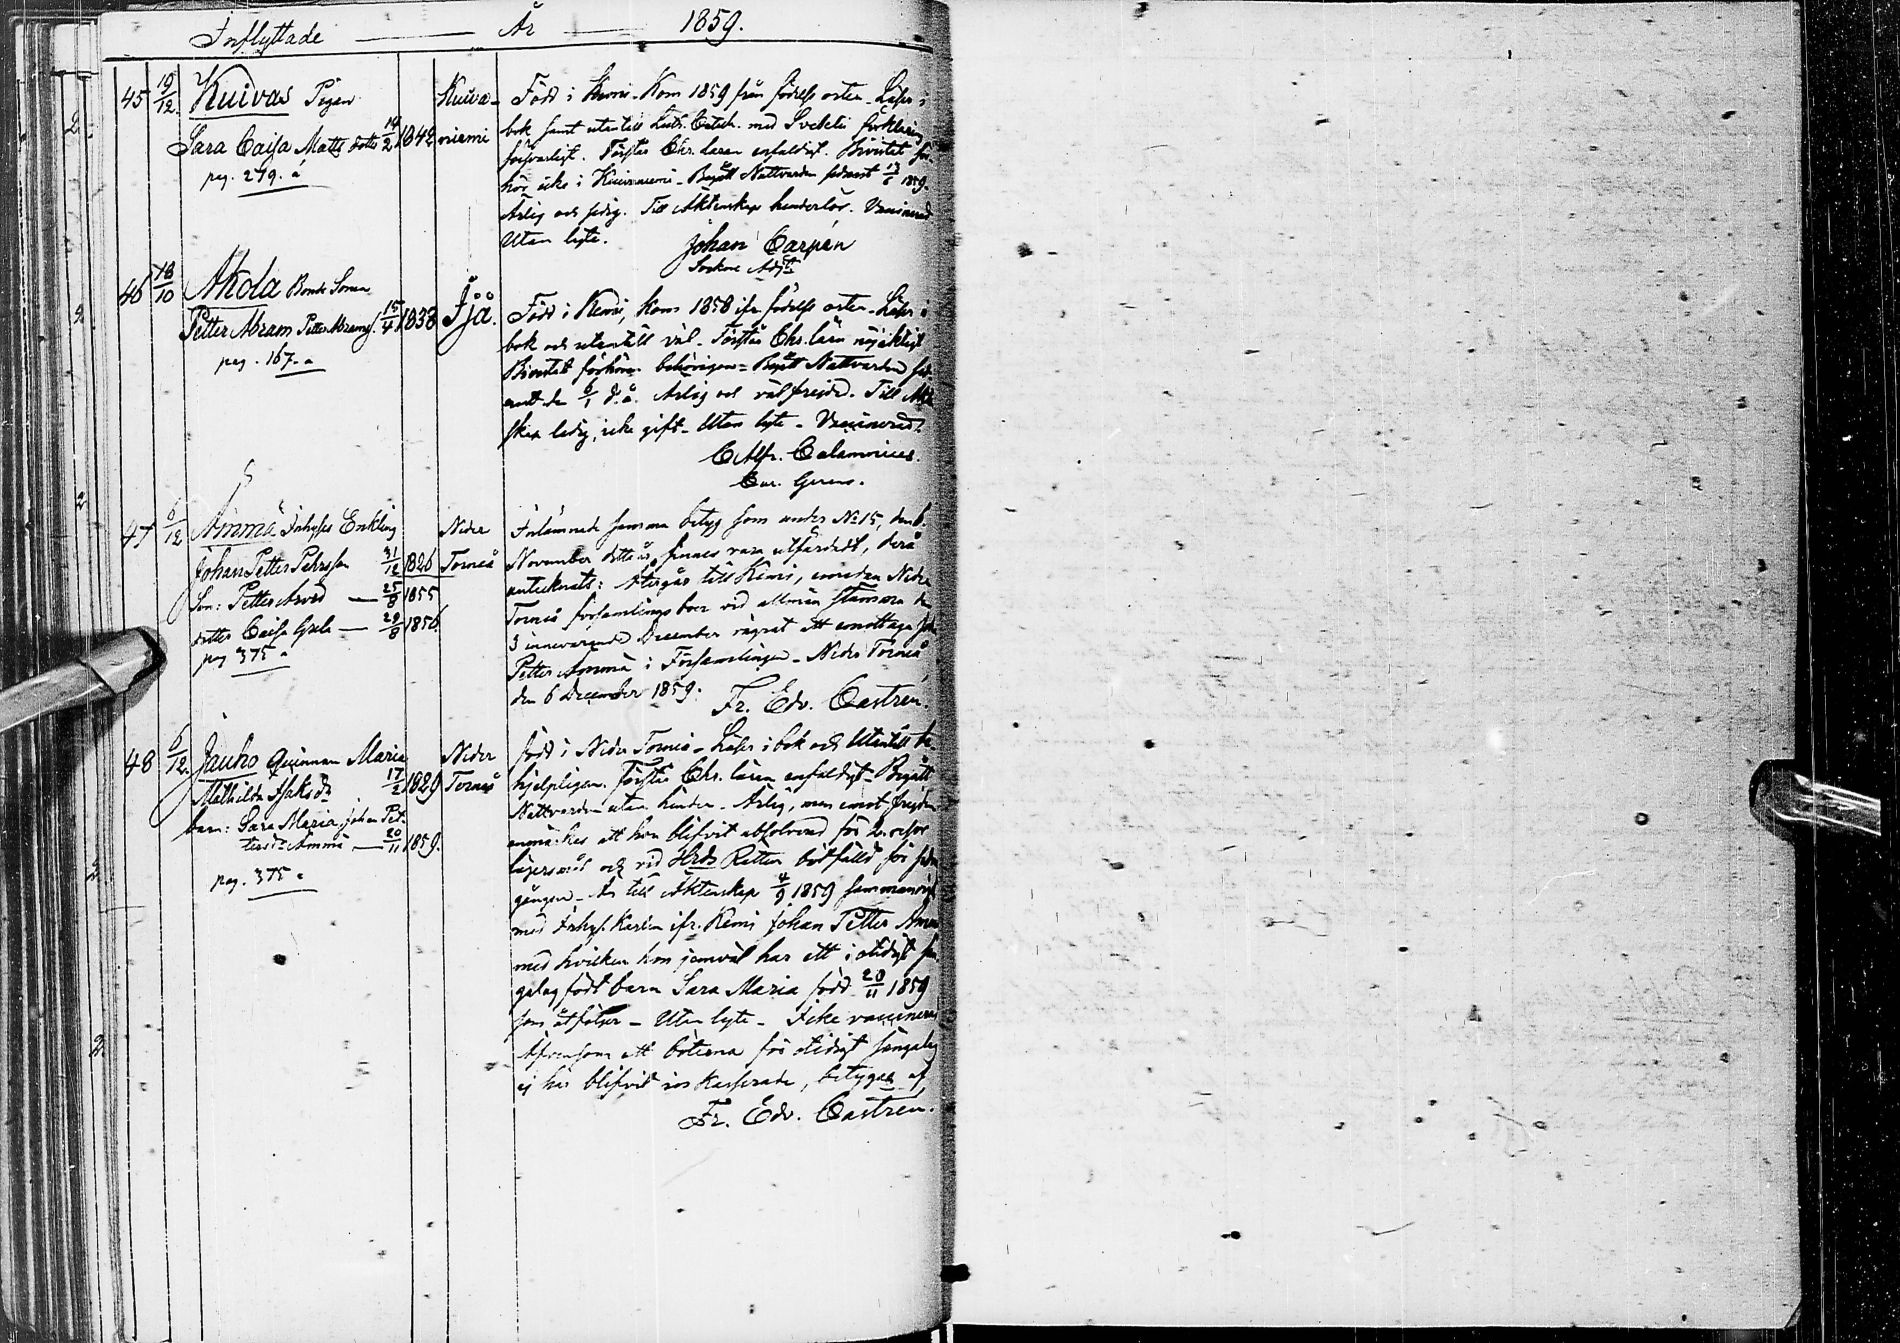 Inflyttade År 1859.
45 19/12. Kuivas Pigan
Sara Caisa Matts dotter 14/2 1842
pag. 279. a
Kuiva-
niemi
Född i Kemi. Kom 1859 från födelse orten. Läser i
bok samt utantill Luth. Catech. med Svebelii förklaring
försvarligt. Förstår Chr. läran enfaldigt. Bivistat för-
hör icke i Kuivaniemi. Begått Nattvarden sednast 1859.
Ärlig och sedig. Till Äktenskap hinderlös. Vaccinerad
Utan lyte.
Johan Carpén
Sockne Adj.
46 18/10 Akola Bonde Sonen
Petter Abram Petter Abramss. 15/4 1838
pag. 167. a
Ijå.
Född i Kemi, kom 1858 ifr. födelse orten. Läser i
bok och utantill väl. Förstår Chr. läran nöjaktigt
Bivistat förhören behörigen. Begått Nattvarden sed-
nast den 6/1 d. å. Ärlig och väl frejdad. Till Äkten-
skap ledig, icke gift. Utan lyte. Vaccinerad.
C. Alfr. Calamnius.
Cur. Gerens.
47 6/12 Ämmä Inhyses Enkling
Johan Petter Pehrsson 31/12 1826
Son: Petter Arvid — 25/8 1855
dotter Caisa Greta — 29/8 1856
pag 375 a
Nider
Torneå
Inlämnade samma betyg som under No 15, den 6.
November detta år, finnes vara utfärdadt, derå
antecknats: Återgår till Kemi, emedan Neder
Torneå församlings boer vid allmän stämma den
3 innevarande December vägrat att emottaga Joh.
Petter Ämmä i Församlingen. Neder Torneå
den 6 December 1859. Fr. Edv. Castrén.
48 6/12. Jauho Qvinnan Maria
Mathilda Isaks dr 17/2 1829
barn: Sara Maria, Johan Pet-
tersdr Ämmä — 20/11 1859.
pag. 375 a
Neder
Torneå
född i Neder Torneå. Läser i bok och Utantill be-
hjelpligen. Förstår Chr. läran enfaldigt. Begått
Nattvarden utan hinder. Ärlig, men emot frejden
anmärkes att hon blifvit absolverad för 2. resor
lägersmål och vid Hrds Rätten bötfälld för sedn.
gången. Är till Äktenskap 4/9 1859 sammanvigd
med Inhys. Karlen ifr. Kemi Johan Petter Ämmä
med hvilken hon jemväl har ett i otidigt sän-
galag födt barn Sara Maria född 20/11 1859
som åtföljer. Utan lyte. Icke vaccinerad
Äfvensom att böterna för otidigt sängalag
ej här blifvit inkasserade, betygas af
Fr. Edv. Castrén.